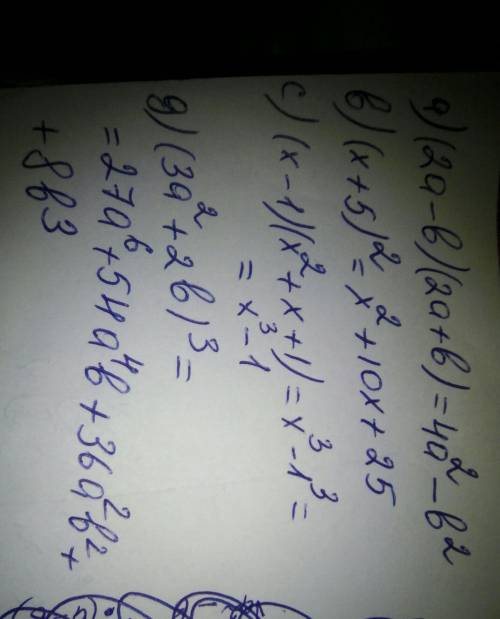 a) (2a-b)(2a+b)=4a²-b²
b) (x+5)²=x²+10x+25
c) (x-1)(x²+x+1)=x³-1³=
=x³-1
g) (3a²+2b)³=
=27a⁶+54a⁴b+36a²b²+
+8b³